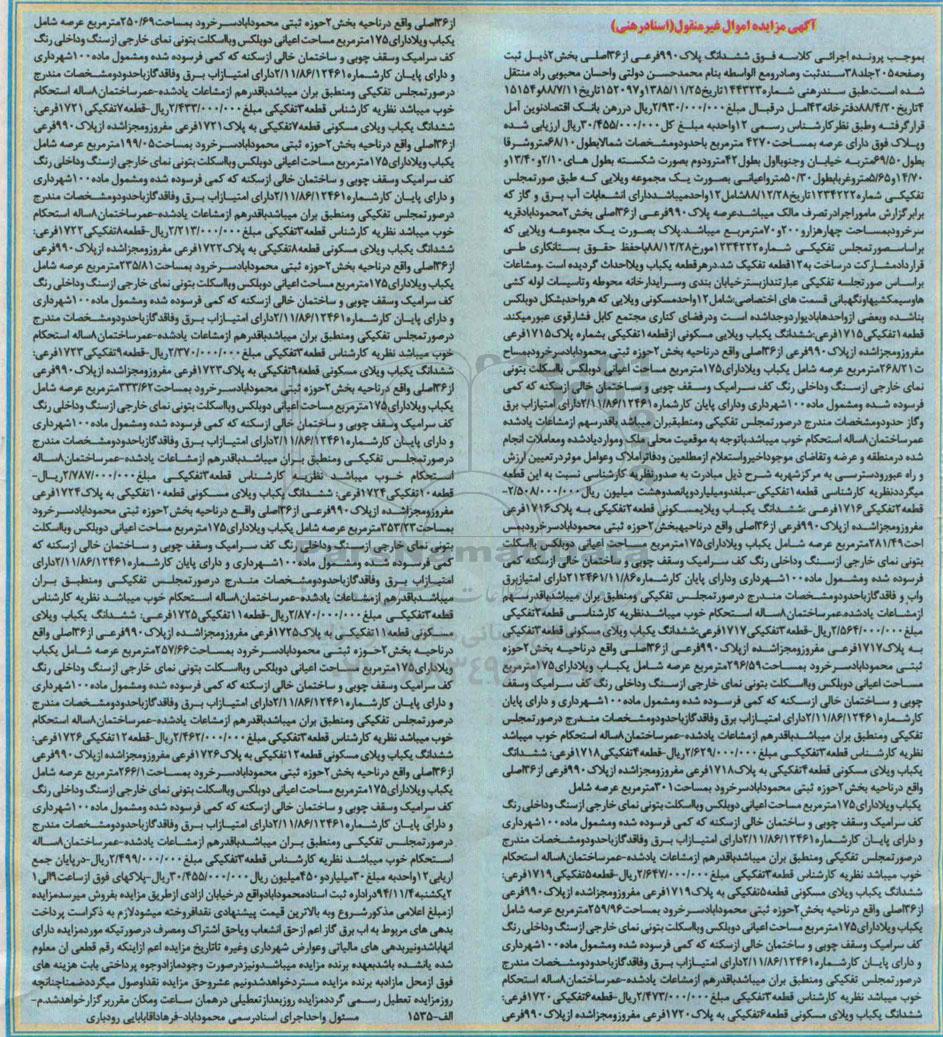 آگهی مزایده اموال غیرمنقول(اسنادرهنی)
بموجب پرونده اجرائی کلاسه فوق ششدانگ پلاک۹۹۰فرعی از۳۶اصلی بخش۲ذیل ثبت
وصفحه۲۰۵جلد۳۸سندثبت وصادرومع الواسطه بنام محمدحسن دولتی واحسان محبوبی راد منتقل
شده است.طبق سندرهنی شماره۱۴۴۳۲۳تاریخ۱۳۸۵/۱۱/۲۵و۱۵۲۰۹۷تاریخ۸۸/۷/۱۱و۱۵۱۵۴
۴تاریخ۸۸/۴/۲۰دفترخانه۴۳آمل درقبال مبلغ۲/۹۳۰/۰۰۰/۰۰۰ریال دررهن بانک اقتصادنوین آمل
قرارگرفته وطبق نظرکارشناس رسمی ۱۲واحدبه مبلغ کل۳۰/۴۵۵/۰۰۰/۰۰۰ریال ارزیابی شده
وپلاک فوق دارای عرصه بمساحت۴۲۷۰ مترمربع باحدودومشخصات شمالابطول۶۸/۱۰متروشرقا
بطول۶۹/۵۰متربه خیابان وجنوبااول بطول۴۲مترودوم بصورت شکسته بطول های۲/۱۰و۱۳/۴۰و
۱۴/۷۰و۵/۶۵متروغربابطول۵۰/۳۰مترواعیانی بصورت یک مجموعه ویلایی که طبق صورتمجلس
تفکیکی شماره۱۲۳۴۲۲۲تاریخ۸۸/۱۲/۲۸شامل۱۲واحدمیباشددارای انشعابات آب برق و گاز که
برابرگزارش ماموراجرادرتصرف مالک میباشدعرصه پلاک۹۹۰فرعی از۳۶اصلی بخش۲محمودابادقریه
سرخرودبمساحت چهارهزارو۲۰۰و۷۰مترمربع میباشد.پلاک بصورت یک مجموعه ویلایی که
براساس‌صورتمجلس تفکیکی شماره۱۲۳۴۲۲۲مورخ۸۸/۱۲/۲۸باحفظ حقوق بستانکاری طی
قراردادمشارکت درساخت به۱۲قطعه تفکیک شد.درهرقطعه یکباب ویلااحداث گردیده است .ومشاعات
براساس صورتجلسه تفکیکی عبارتندازبسترخیابان بندی وسرایدارخانه محوطه وتاسیسات لوله کشی
هاوسیمکشیهاونگهبانی قسمت های اختصاصی:شامل۱۲واحدمسکونی ویلایی که هرواحدبشکل دوبلکس
بناشده وبعضی ازواحدهابادیواردوجداشده است ودرفضای کناری مجتمع کابل فشارقوی عبورمیکند.
قطعه۱تفکیکی۱۷۱۵فرعی:ششدانگ یکباب ویلایی مسکونی ازقطعه۱تفکیکی بشماره پلاک۱۷۱۵فرعی
مفروزومجزاشده ازپلاک۹۹۰فرعی از۳۶اصلی واقع درناحیه بخش۲حوزه ثبتی محمودابادسرخرودبمساح
ت۲۶۸/۲۱مترمربع عرصه شامل یکباب ویلادارای۱۷۵مترمربع مساحت اعیانی دوبلکس بااسکلت بتونی
نمای خارجی ازسنگ وداخلی رنگ کف سرامیک وسقف چوبی و ساختمان خالی ازسکنه که کمی
فرسوده شده ومشمول ماده۱۰۰شهرداری ودارای پایان کارشماره۲/۱۱/۸۶/۱۲۴۶۱دارای امتیازاب برق
وگاز حدودومشخصات مندرج درصورتمجلس تفکیکی ومنطبقبران میباشد باقدرسهم ازمشاعات یادشده
عمرساختمان۸ساله استحکام خوب میباشدباتوجه به موقعیت محلی ملک ومواردیادشده ومعاملات انجام
شده درمنطقه و عرضه وتقاضای موجوداخیرواستعلام ازمطلعین ودفاتراملاک وعوامل موثردرتعیین ارزش
و راه عبورودسترسی به مرکزشهربه شرح ذیل مبادرت به صدورنظریه کارشناسی نسبت به این قطعه
میگرددنظریه کارشناسی قطعه۱تفکیکی–مبلغدومیلیاردوپانصدوهشت میلیون ریال۲/۵۰۸/۰۰۰/۰۰۰–
قطعه۲تفکیکی ۱۷۱۶فرعی :ششدانگ یکباب ویلاییمسکونی قطعه۲تفکیکی به پلاک۱۷۱۶فرعی
مفروزومجزاشده ازپلاک۹۹۰فرعی از۳۶اصلی واقع درناحیهبخش۲حوزه ثبتی محمودابادسرخرودبمس
احت۲۸۱/۴۹مترمربع عرصه شامل یکباب ویلادارای۱۷۵مترمربع مساحت اعیانی دوبلکس بااسکلت
بتونی نمای خارجی ازسنگ وداخلی رنگ کف سرامیک وسقف چوبی و ساختمان خالی ازسکنه کمی
فرسوده شده ومشمول ماده۱۰۰شهرداری ودارای پایان کارشماره۲۱۲۴۶۱/۱۱/۸۶دارای امتیازبرق
واب و فاقدگازباحدودومشخصات مندرج درصورتمجلس تفکیکی ومنطبق بران میباشدباقدرسهم
ازمشاعات یادشده–عمرساختمان۸ساله استحکام خوب میباشدنظریه کارشناسی قطعه۲تفکیکی
مبلغ۲/۵۶۴/۰۰۰/۰۰۰ریال–قطعه۳تفکیکی۱۷۱۷فرعی:ششدانگ یکباب ویلای مسکونی قطعه۳تفکیکی
به پلاک۱۷۱۷فرعی مفروزومجزاشده ازپلاک۹۹۰فرعی از۳۶اصلی واقع درناحیه بخش۲حوزه
ثبتی محمودابادسرخرود بمساحت۲۹۶/۵۹مترمربع عرصه شامل یکباب ویلادارای۱۷۵مترمربع
مساحت اعیانی دوبلکس وبااسکلت بتونی نمای خارجی ازسنگ وداخلی رنگ کف سرامیک وسقف
چوبی و ساختمان خالی ازسکنه که کمی فرسوده شده ومشمول ماده۱۰۰شهرداری و دارای پایان
کارشماره۲/۱۱/۸۶/۱۲۴۶۱دارای امتیازاب برق وفاقدگازباحدودومشخصات مندرج درصورتمجلس
تفکیکی ومنطبق بران میباشدباقدرهم ازمشاعات یادشده–عمرساختمان۸ساله استحکام خوب میباشد
نظریه کارشناس قطعه۳تفکیکی مبلغ۲/۶۲۹/۰۰۰/۰۰۰ریال–قطعه۴تفکیکی۱۷۱۸فرعی: ششدانگ
یکباب ویلای مسکونی قطعه۴تفکیکی به پلاک۱۷۱۸فرعی مفروزومجزاشده ازپلاک۹۹۰فرعی از۳۶اصلی
واقع درناحیه بخش۲حوزه ثبتی محمودابادسرخرود بمساحت۳۰۱مترمربع عرصه شامل
یکباب ویلادارای۱۷۵مترمربع مساحت اعیانی دوبلکس وبااسکلت بتونی نمای خارجی ازسنگ وداخلی رنگ
کف سرامیک وسقف چوبی و ساختمان خالی ازسکنه که کمی فرسوده شده ومشمول ماده۱۰۰شهرداری
و دارای پایان کارشماره۲/۱۱/۸۶/۱۲۴۶۱دارای امتیازاب برق وفاقدگازباحدودومشخصات مندرج
درصورتمجلس تفکیکی ومنطبق بران میباشدباقدرهم ازمشاعات یادشده–عمرساختمان۸ساله استحکام
خوب میباشد نظریه کارشناس قطعه۳تفکیکی مبلغ۲/۶۴۷/۰۰۰/۰۰۰ریال–قطعه۵تفکیکی۱۷۱۹فرعی:
ششدانگ یکباب ویلای مسکونی قطعه۵تفکیکی به پلاک۱۷۱۹فرعی مفروزومجزاشده ازپلاک۹۹۰فرعی
از۳۶اصلی واقع درناحیه بخش۲حوزه ثبتی محمودابادسرخرود بمساحت۲۵۹/۹۶مترمربع عرصه شامل
یکباب ویلادارای۱۷۵مترمربع مساحت اعیانی دوبلکس وبااسکلت بتونی نمای خارجی ازسنگ وداخلی رنگ
کف سرامیک وسقف چوبی و ساختمان خالی ازسکنه که کمی فرسوده شده ومشمول ماده۱۰۰شهرداری
و دارای پایان کارشماره۲/۱۱/۸۶/۱۲۴۶۱دارای امتیازاب برق وفاقدگازباحدودومشخصات مندرج
درصورتمجلس تفکیکی ومنطبق بران میباشدباقدرهم ازمشاعات یادشده–عمرساختمان۸ساله استحکام
خوب میباشد نظریه کارشناس قطعه۳تفکیکی مبلغ۲/۴۷۳/۰۰۰/۰۰۰ریال–قطعه۶تفکیکی۱۷۲۰فرعی:
ششدانگ یکباب ویلای مسکونی قطعه۶تفکیکی به پلاک۱۷۲۰فرعی مفروزومجزاشده ازپلاک۹۹۰فرعی
از۳۶اصلی واقع درناحیه بخش۲حوزه ثبتی محمودابادسرخرود بمساحت۲۵۰/۶۹مترمربع عرصه شامل
یکباب ویلادارای۱۷۵مترمربع مساحت اعیانی دوبلکس وبااسکلت بتونی نمای خارجی ازسنگ وداخلی رنگ
کف سرامیک وسقف چوبی و ساختمان خالی ازسکنه که کمی فرسوده شده ومشمول ماده۱۰۰شهرداری
و دارای پایان کارشماره۲/۱۱/۸۶/۱۲۴۶۱دارای امتیازاب برق وفاقدگازباحدودومشخصات مندرج
درصورتمجلس تفکیکی ومنطبق بران میباشدباقدرهم ازمشاعات یادشده–عمرساختمان۸ساله استحکام
خوب میباشد نظریه کارشناس قطعه۳تفکیکی مبلغ۲/۴۳۳/۰۰۰/۰۰۰ریال–قطعه۷تفکیکی۱۷۲۱فرعی:
ششدانگ یکباب ویلای مسکونی قطعه۷تفکیکی به پلاک۱۷۲۱فرعی مفروزومجزاشده ازپلاک۹۹۰فرعی
از۳۶اصلی واقع درناحیه بخش۲حوزه ثبتی محمودابادسرخرود بمساحت۱۹۹/۰۵مترمربع عرصه شامل
یکباب ویلادارای۱۷۵مترمربع مساحت اعیانی دوبلکس وبااسکلت بتونی نمای خارجی ازسنگ وداخلی رنگ
کف سرامیک وسقف چوبی و ساختمان خالی ازسکنه که کمی فرسوده شده ومشمول ماده۱۰۰شهرداری
و دارای پایان کارشماره۲/۱۱/۸۶/۱۲۴۶۱دارای امتیازاب برق وفاقدگازباحدودومشخصات مندرج
درصورتمجلس تفکیکی ومنطبق بران میباشدباقدرهم ازمشاعات یادشده–عمرساختمان۸ساله استحکام
خوب میباشد نظریه کارشناس قطعه۳تفکیکی مبلغ۲/۲۱۳/۰۰۰/۰۰۰ریال–قطعه۸تفکیکی۱۷۲۲فرعی:
ششدانگ یکباب ویلای مسکونی قطعه۸تفکیکی به پلاک۱۷۲۲فرعی مفروزومجزاشده ازپلاک۹۹۰فرعی
از۳۶اصلی واقع درناحیه بخش۲حوزه ثبتی محمودابادسرخرود بمساحت۲۳۵/۸۱مترمربع عرصه شامل
یکباب ویلادارای۱۷۵مترمربع مساحت اعیانی دوبلکس وبااسکلت بتونی نمای خارجی ازسنگ وداخلی رنگ
کف سرامیک وسقف چوبی و ساختمان خالی ازسکنه که کمی فرسوده شده ومشمول ماده۱۰۰شهرداری
و دارای پایان کارشماره۲/۱۱/۸۶/۱۲۴۶۱دارای امتیازاب برق وفاقدگازباحدودومشخصات مندرج
درصورتمجلس تفکیکی ومنطبق بران میباشدباقدرهم ازمشاعات یادشده–عمرساختمان۸ساله استحکام
خوب میباشد نظریه کارشناس قطعه۳تفکیکی مبلغ۲/۳۷۰/۰۰۰/۰۰۰ریال–قطعه۹تفکیکی۱۷۲۳فرعی:
ششدانگ یکباب ویلای مسکونی قطعه۹تفکیکی به پلاک۱۷۲۳فرعی مفروزومجزاشده ازپلاک۹۹۰فرعی
از۳۶اصلی واقع درناحیه بخش۲حوزه ثبتی محمودابادسرخرود بمساحت۳۳۳/۶۲مترمربع عرصه شامل
یکباب ویلادارای۱۷۵مترمربع مساحت اعیانی دوبلکس وبااسکلت بتونی نمای خارجی ازسنگ وداخلی رنگ
کف سرامیک وسقف چوبی و ساختمان خالی ازسکنه که کمی فرسوده شده ومشمول ماده۱۰۰شهرداری
و دارای پایان کارشماره۲/۱۱/۸۶/۱۲۴۶۱دارای امتیازاب برق وفاقدگازباحدودومشخصات مندرج
درصورتمجلس تفکیکی ومنطبق بران میباشدباقدرهم ازمشاعات یادشده–عمرساختمان۸ساله
استحکام خوب میباشد نظریه کارشناس قطعه۳تفکیکی مبلغ۲/۷۸۷/۰۰۰/۰۰۰ریال–
قطعه۱۰تفکیکی۱۷۲۴فرعی: ششدانگ یکباب ویلای مسکونی قطعه۱۰تفکیکی به پلاک۱۷۲۴فرعی
مفروزومجزاشده ازپلاک۹۹۰فرعی از۳۶اصلی واقع درناحیه بخش۲حوزه ثبتی محمودابادسرخرود
بمساحت۳۵۳/۲۳مترمربع عرصه شامل یکباب ویلادارای۱۷۵مترمربع مساحت اعیانی دوبلکس وبااسکلت
بتونی نمای خارجی ازسنگ وداخلی رنگ کف سرامیک وسقف چوبی و ساختمان خالی ازسکنه که
کمی فرسوده شده ومشمول ماده۱۰۰شهرداری و دارای پایان کارشماره۲/۱۱/۸۶/۱۲۴۶۱دارای
امتیازاب برق وفاقدگازباحدودومشخصات مندرج درصورتمجلس تفکیکی ومنطبق بران
میباشدباقدرهم ازمشاعات یادشده–عمرساختمان۸ساله استحکام خوب میباشد نظریه کارشناس
قطعه۳تفکیکی مبلغ۲/۸۷۰/۰۰۰/۰۰۰ریال–قطعه۱۱تفکیکی۱۷۲۵فرعی: ششدانگ یکباب ویلای
مسکونی قطعه۱۱تفکیکی به پلاک۱۷۲۵فرعی مفروزومجزاشده ازپلاک۹۹۰فرعی از۳۶اصلی واقع
درناحیه بخش۲حوزه ثبتی محمودابادسرخرود بمساحت۲۵۷/۶۶مترمربع عرصه شامل یکباب
ویلادارای۱۷۵مترمربع مساحت اعیانی دوبلکس وبااسکلت بتونی نمای خارجی ازسنگ وداخلی رنگ
کف سرامیک وسقف چوبی و ساختمان خالی ازسکنه که کمی فرسوده شده ومشمول ماده۱۰۰شهرداری
و دارای پایان کارشماره۲/۱۱/۸۶/۱۲۴۶۱دارای امتیازاب برق وفاقدگازباحدودومشخصات مندرج
درصورتمجلس تفکیکی ومنطبق بران میباشدباقدرهم ازمشاعات یادشده–عمرساختمان۸ساله استحکام
خوب میباشد نظریه کارشناس قطعه۳تفکیکی مبلغ۲/۴۶۲/۰۰۰/۰۰۰ریال–قطعه۱۲تفکیکی۱۷۲۶فرعی:
ششدانگ یکباب ویلای مسکونی قطعه۱۲تفکیکی به پلاک۱۷۲۶فرعی مفروزومجزاشده ازپلاک۹۹۰فرعی
از۳۶اصلی واقع درناحیه بخش۲حوزه ثبتی محمودابادسرخرود بمساحت۲۶۶/۱مترمربع عرصه شامل
یکباب ویلادارای۱۷۵مترمربع مساحت اعیانی دوبلکس وبااسکلت بتونی نمای خارجی ازسنگ وداخلی رنگ
کف سرامیک وسقف چوبی و ساختمان خالی ازسکنه که کمی فرسوده شده ومشمول ماده۱۰۰شهرداری
و دارای پایان کارشماره۲/۱۱/۸۶/۱۲۴۶۱دارای امتیازاب برق وفاقدگازباحدودومشخصات مندرج
درصورتمجلس تفکیکی ومنطبق بران میباشدباقدرهم ازمشاعات یادشده–عمرساختمان۸ساله
استحکام خوب میباشد نظریه کارشناس قطعه۳تفکیکی مبلغ۲/۴۹۹/۰۰۰/۰۰۰ریال–درپایان جمع
اریابی۱۲واحدبه مبلغ ۳۰میلیاردو۴۵۰میلیون ریال۳۰/۴۵۵/۰۰۰/۰۰۰ریال–پلاکهای فوق ازساعت۹الی۱
۲یکشنبه۹۴/۱۱/۴دراداره ثبت اسنادمحمودابادواقع درخیابان ازادی ازطریق مزایده بفروش میرسدمزایده
ازمبلغ اعلامی مذکورشروع وبه بالاترین قیمت پیشنهادی نقدافروخته میشودلازم به ذکراست پرداخت
بدهی های مربوط به اب برق گاز اعم ازحق انشعاب ویاحق اشتراک ومصرف درصورتیکه موردمزایده دارای
انهاباشدونیزبدهی های مالیاتی وعوارض شهرداری وغیره تاتاریخ مزایده اعم ازاینکه رقم قطعی ان معلوم
شده یانشده باشدبعهده برنده مزایده میباشدونیزدرصورت وجودمازادوجوه پرداختی بابت هزینه های
فوق ازمحل مازادبه برنده مزایده مستردخواهدشدونیم عشروحق مزایده نقداوصول میگرددضمناچنانچه
روزمزایده تعطیل رسمی گرددمزایده روزبعدازتعطیلی درهمان ساعت ومکان مقرربرگزارخواهدشد.م–
الف–۱۵۳۵ مسئول واحداجرای اسنادرسمی محموداباد–فرهاداقابابایی رودباری
ParsNamadData